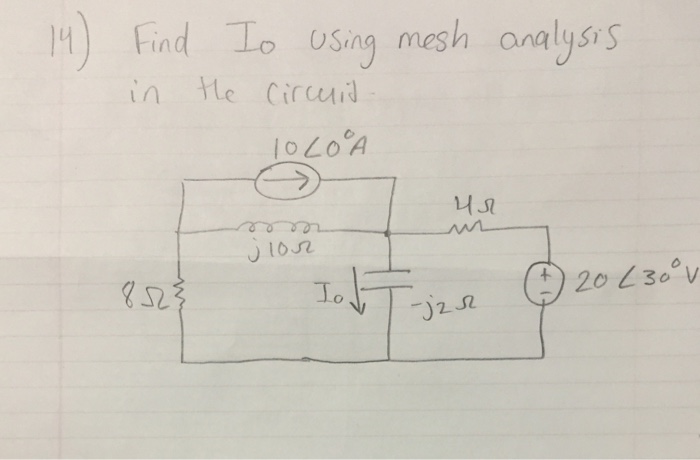 14) Find Io using mesh analysis
in the circuit.
10∠0°A
4Ω
j10Ω
8Ω
Io
-j2Ω
+
-
20∠30°V